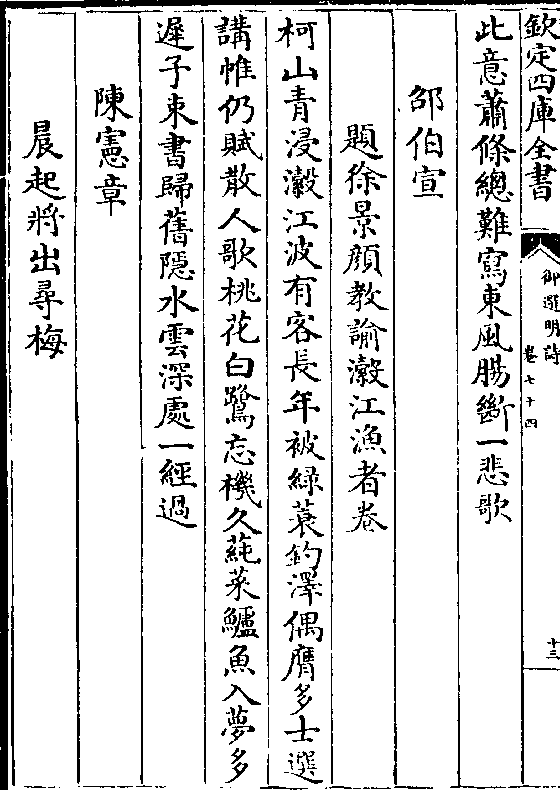 欽定四庫全書
御選明詩
卷七十四
十三
此意蕭條總難寫東風腸斷一悲歌
邵伯宣
題徐景顔教諭瀫江漁者卷
柯山青浸瀫江波有客長年被綠蓑釣澤偶膺多士選
講帷仍賦散人歌桃花白鷺忘機久蒓菜鱸魚入夢多
遲子束書歸舊隱水雲深處一經過
陳憲章
晨起將出尋梅